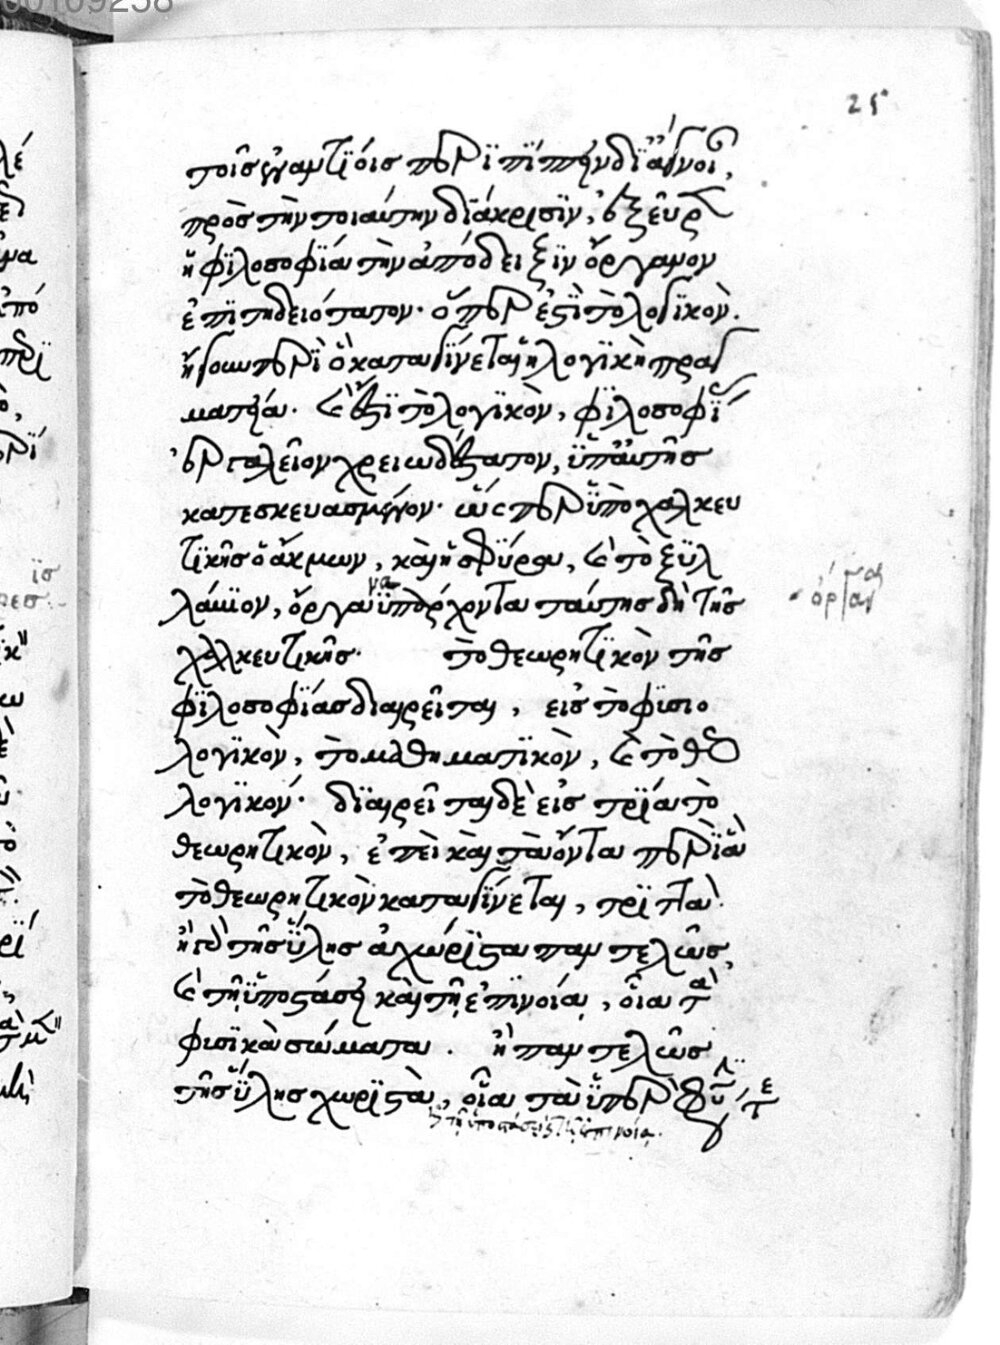 25
ποις ἐναντίοις περὶ τὴν διάγνοι,
πρὸς τὴν τοιαύτην διάκρισιν, ἐξεῦρ
ἡ φιλοσοφία τὴν ἀπόδειξιν ὄργανον
ἐπιτηδειότατον· ὅπερ ἐστὶ τὸ λογικὸν.
ἤγουν περὶ ὃ καταγίνεται ἡ λογικὴ πραγ
ματεία. καὶ ἔστι τὸ λογικὸν, φιλοσοφί
ἐργαλεῖον χρειωδέστατον, ὑπ' αὐτῆς
κατεσκευασμένον· ὥσπερ ὑπὸ χαλκευ
τικῆς ὁ ἄκμων, καὶ ἡ σφύρα, καὶ τὸ ξυλ
λάβιον, ὄργανα ὑπάρχοντα ταύτης δὴ τῆς
χαλκευτικῆς· τὸ θεωρητικὸν τῆς
φιλοσοφίας διαιρεῖται, εἰς τὸ φυσιο
λογικὸν, τὸ μαθηματικὸν, καὶ τὸ θεο
λογικόν· διαιρεῖται δὲ εἰς τρία τὸ
θεωρητικὸν, ἐπεὶ καὶ τὰ ὄντα περὶ ἃ
τὸ θεωρητικὸν καταγίνεται, τριττά·
ἢ γὰρ τῆς ὕλης ἀχώριστα παντελῶς,
καὶ τῇ ὑποστάσει καὶ τῇ ἐπινοίᾳ, οἷα τὰ
φυσικὰ σώματα. ἢ παντελῶς
τῆς ὕλης χωριστὰ, οἷα τὰ ὑπὲρ φύ
καὶ τῇ ὑποστάσει καὶ τῇ ἐπινοίᾳ.